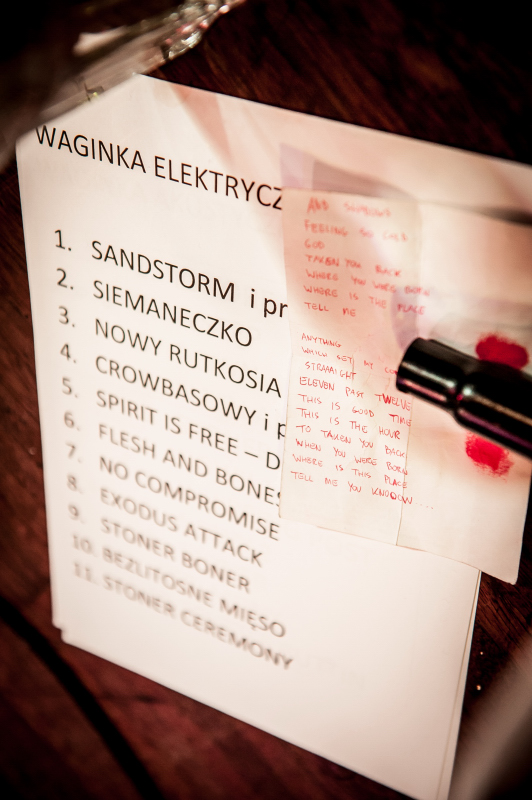 WAGINKA ELEKTRYCZ
1. SANDSTORM i pr
2. SIEMANECZKO
3. NOWY RUTKOSIA
4. CROWBASOWY i p
5. SPIRIT IS FREE – D
6. FLESH AND BONES
7. NO COMPROMISE
8. EXODUS ATTACK
9. STONER BONER
10. BEZLITOSNE MIĘSO
11. STONER CEREMONY
AND SOMEONE
FEELING SO COLD
GOD
TAKEN YOU BACK
WHERE YOU WERE BORN
WHERE IS THE PLACE
TELL ME
ANYTHING
WHILE SET MY
STRAAAIGHT
ELEVEN PAST TWELVE
THIS IS GOOD TIME
THIS IS THE HOUR
TO TAKEN YOU BACK
WHEN YOU WERE BORN
WHERE IS THIS PLACE
TELL ME YOU KNOOOW....